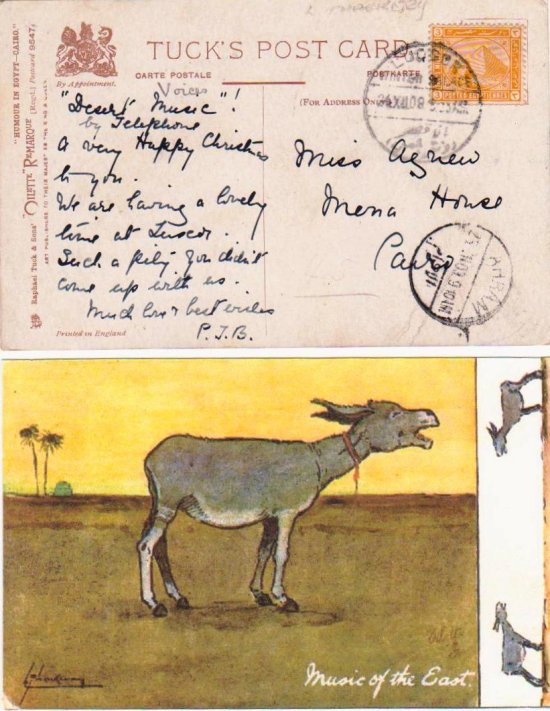 TUCK'S POST CARD
By Appointment.
CARTE POSTALE
POSTKARTE
(FOR ADDRESS ONLY)
"HUMOUR IN EGYPT—CAIRO."
"OILETTE" REMARQUE (REGD.) Postcard 9547
Raphael Tuck & Sons'
ART PUBLISHERS TO THEIR MAJESTIES THE KING & QUEEN
Printed in England
Voices
"Desert Music"!
by Telephone
A very Happy Christmas
to you.
We are having a lovely
time at Luxor.
Such a pity you didn't
come up with us.
Much love & best wishes
P.J.B.
Miss Agnew
Mena House
Cairo
24 XII 08
Music of the East.